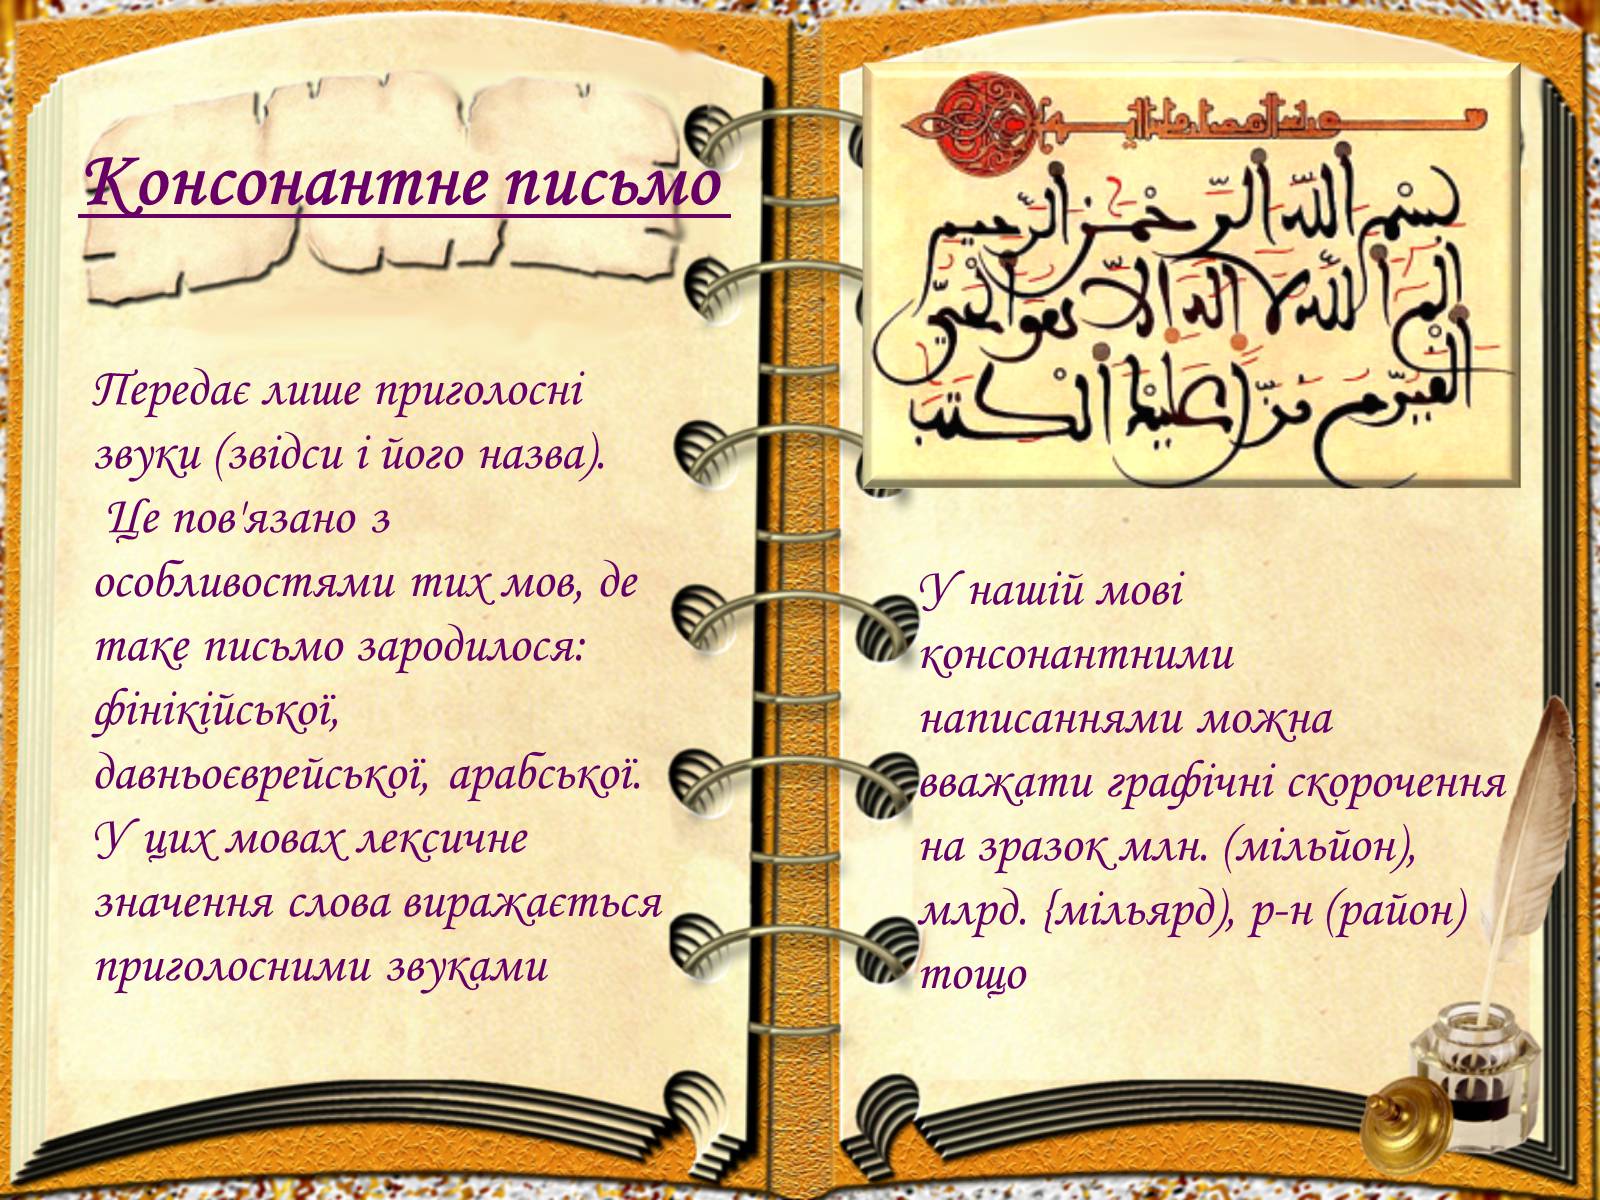 Консонантне письмо
Передає лише приголосні
звуки (звідси і його назва).
Це пов'язано з
особливостями тих мов, де
таке письмо зародилося:
фінікійської,
давньоєврейської, арабської.
У цих мовах лексичне
значення слова виражається
приголосними звуками
بسم الله الرحمن الرحيم
الم الله لا اله الا هو الحي
القيوم نزل عليك الكتب
У нашій мові
консонантними
написаннями можна
вважати графічні скорочення
на зразок млн. (мільйон),
млрд. {мільярд), р-н (район)
тощо